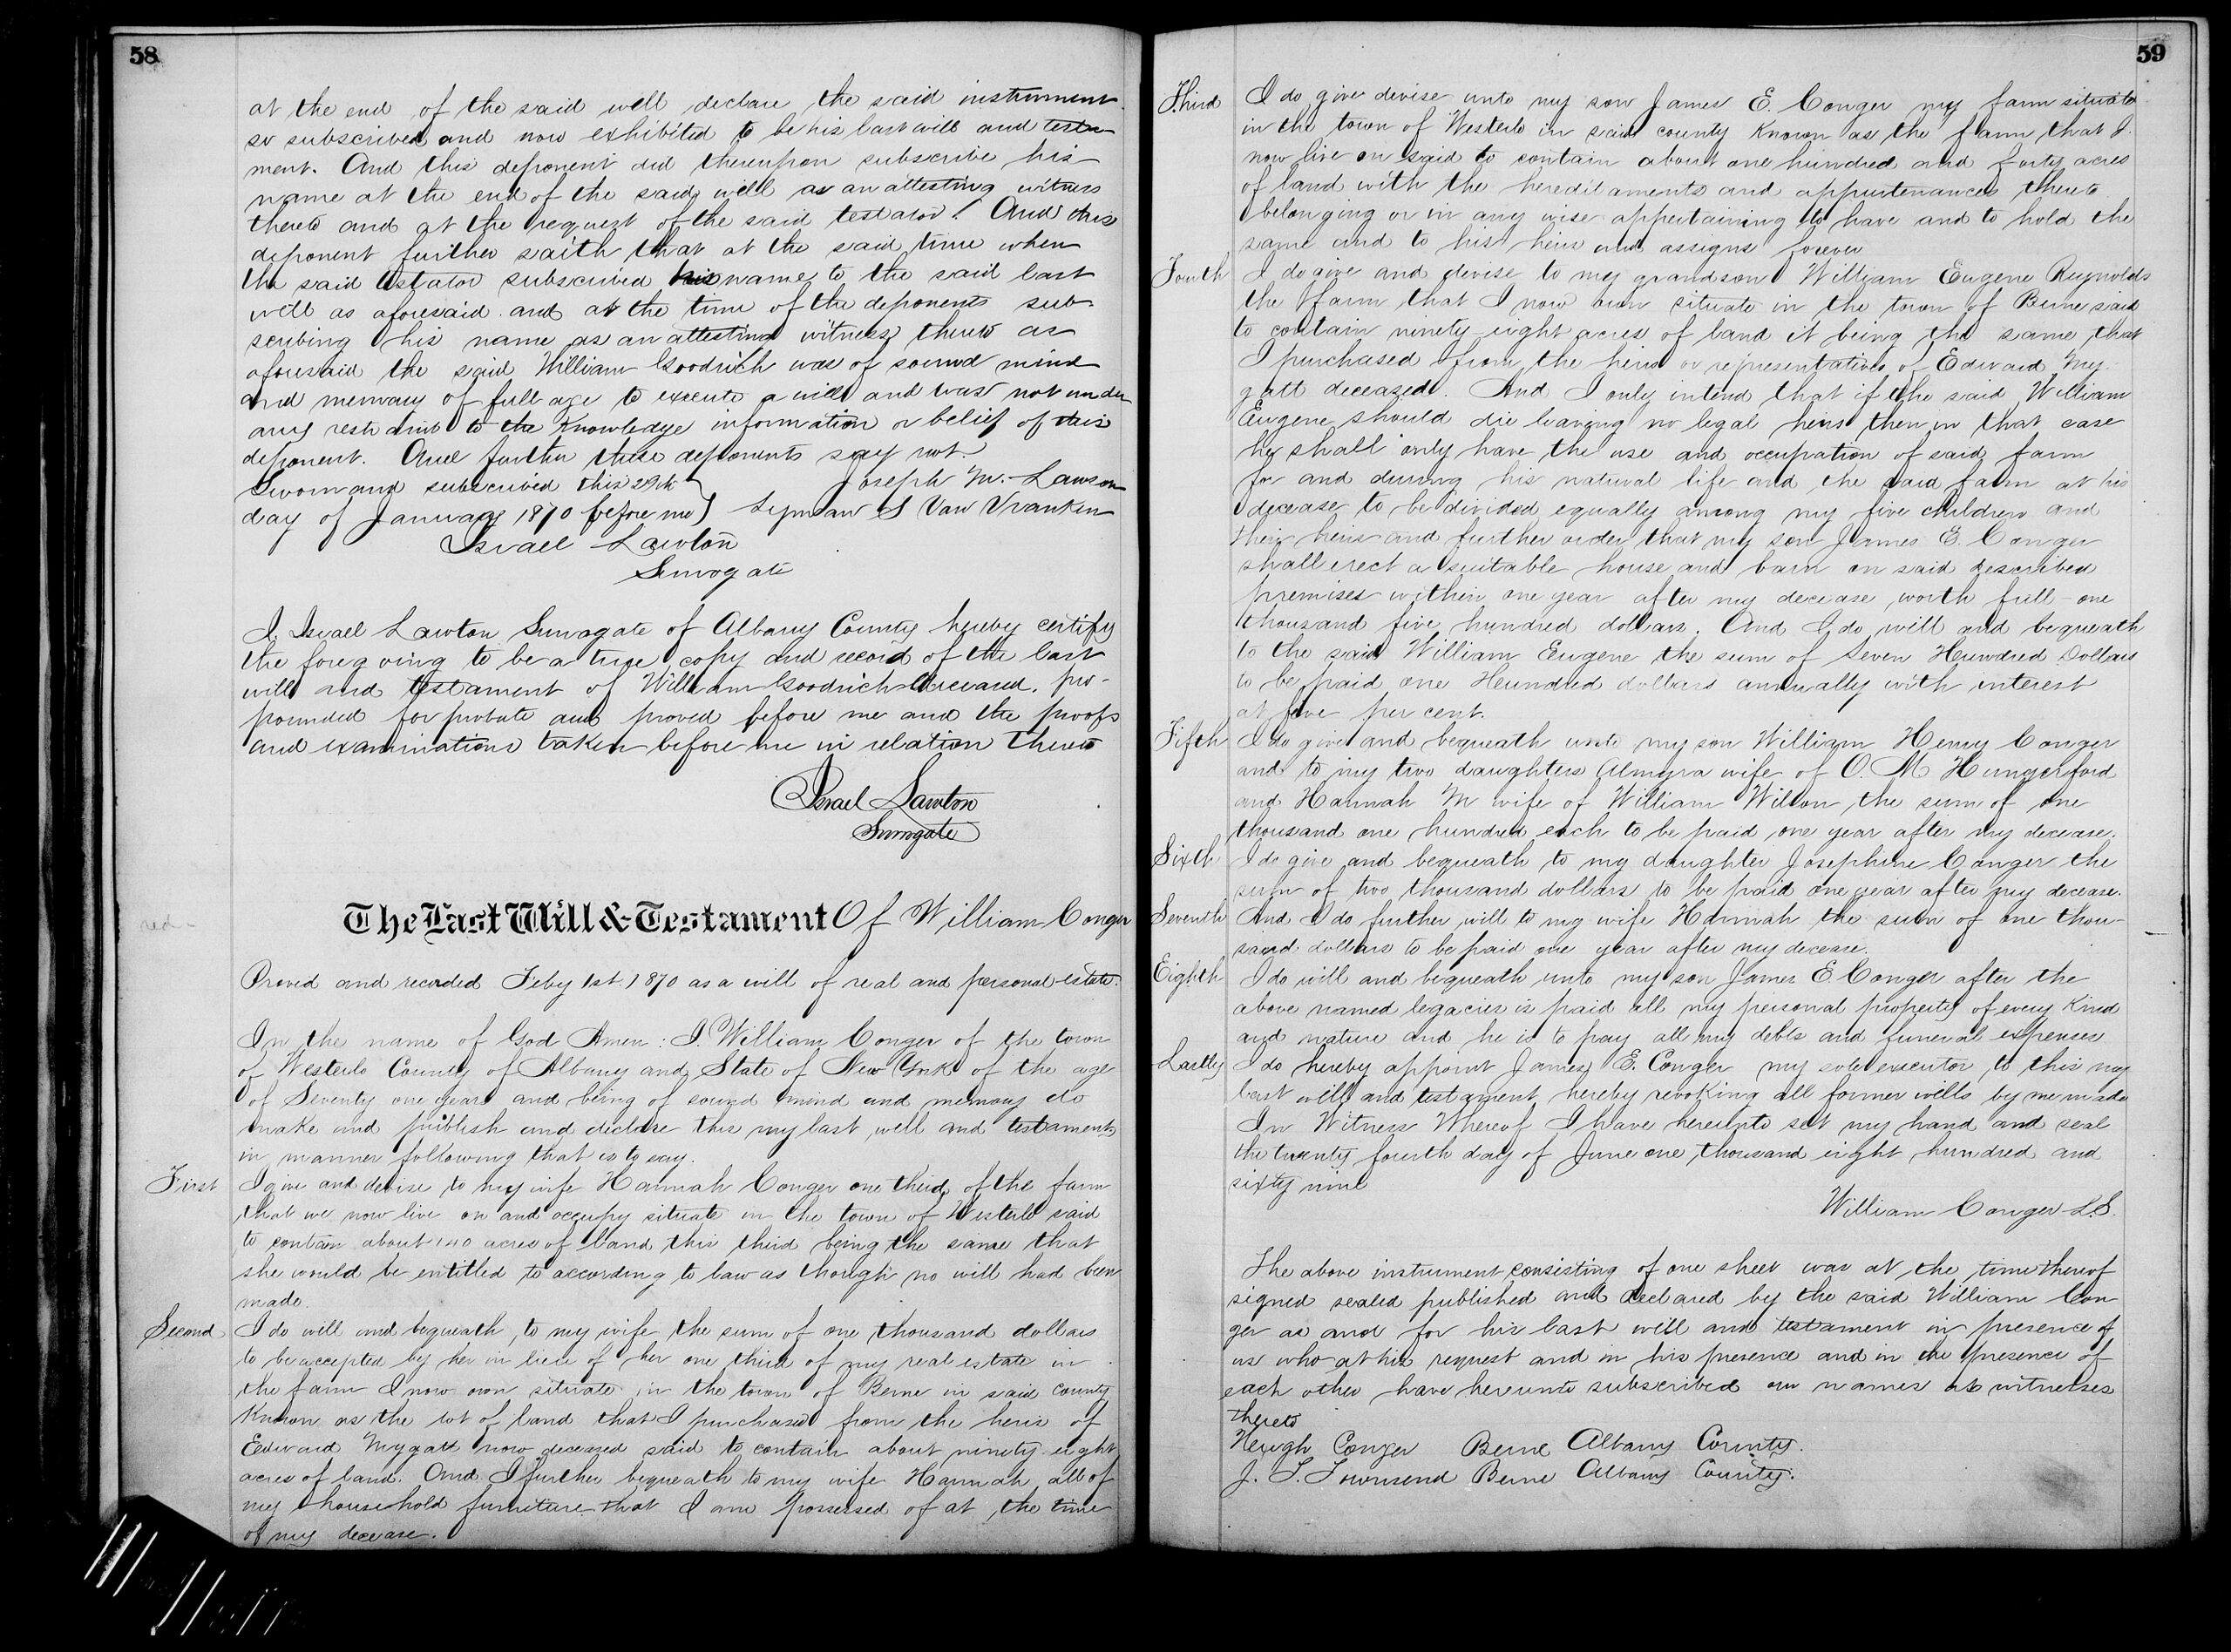 58
at the end of the said will declare the said instrument
so subscribed and now exhibited to be his last will and testa-
ment. And this deponent did thereupon subscribe his
name at the end of the said will as an attesting witness
thereto and at the request of the said testator. And this
deponent further saith that at the said time when
the said testator subscribed his name to the said last
will as aforesaid and at the time of the deponents sub-
scribing his name as an attesting witness thereto as
aforesaid the said William Goodrich was of sound mind
and memory of full age to execute a will and was not under
any restraint to the knowledge information or belief of this
deponent. And further these deponents say not.
Sworn and subscribed this 29th } Joseph M. Lawson
day of January 1870 before me } Lyman S Van Vranken
Israel Lawton
Surrogate
I, Israel Lawton Surrogate of Albany County hereby certify
the foregoing to be a true copy and record of the last
will and testament of William Goodrich deceased, pro-
pounded for probate and proved before me and the proofs
and examinations taken before me in relation thereto
Israel Lawton
Surrogate
The Last Will & Testament Of William Conger
red-
Proved and recorded Feby 1st. 1870 as a will of real and personal estate.
In the name of God Amen: I, William Conger of the town
of Westerlo County of Albany and State of New York of the age
of Seventy one years and being of sound mind and memory do
make and publish and declare this my last will and testament
in manner following that is to say.
First I give and devise to my wife Hannah Conger one third of the farm
that we now live on and occupy situate in the town of Westerlo said
to contain about 140 acres of land this third being the same that
she would be entitled to according to law as though no will had been
made.
Second I do will and bequeath to my wife the sum of one thousand dollars
to be accepted by her in lieu of her one third of my real estate in
the farm I now own situate in the town of Berne in said county
known as the lot of land that I purchased from the heirs of
Edward Mygatt now deceased said to contain about ninety eight
acres of land. And I further bequeath to my wife Hannah all of
my household furniture that I am possessed of at the time
of my decease.
59
Third I do give devise unto my son James E. Conger my farm situate
in the town of Westerlo in said county known as the farm that I
now live on said to contain about one hundred and forty acres
of land with the hereditaments and appurtenances thereto
belonging or in any wise appertaining to have and to hold the
same and to his heirs and assigns forever
Fourth I do give and devise to my grandson William Eugene Reynolds
the farm that I now own situate in the town of Berne said
to contain ninety eight acres of land it being the same that
I purchased from the heirs or representatives of Edward My-
gatt deceased. And I only intend that if the said William
Eugene should die leaving no legal heirs then in that case
he shall only have the use and occupation of said farm
for and during his natural life and the said farm at his
decease to be divided equally among my five children and
their heirs and further order that my son James E. Conger
shall erect a suitable house and barn on said described
premises within one year after my decease worth full one
thousand five hundred dollars. And I do will and bequeath
to the said William Eugene the sum of Seven Hundred Dollars
to be paid one Hundred dollars annually with interest
at five per cent.
Fifth I do give and bequeath unto my son William Henry Conger
and to my two daughters Almyra wife of O. M Hungerford
and Hannah M wife of William Wilson the sum of one
thousand one hundred each to be paid one year after my decease.
Sixth I do give and bequeath to my daughter Josephine Conger the
sum of two thousand dollars to be paid one year after my decease.
Seventh And I do further will to my wife Hannah the sum of one thou-
sand dollars to be paid one year after my decease.
Eighth I do will and bequeath unto my son James E. Conger after the
above named legacies is paid all my personal property of every kind
and nature and he is to pay all my debts and funeral expenses
Lastly I do hereby appoint James E. Conger my sole executor to this my
last will and testament hereby revoking all former wills by me made
In Witness Whereof I have hereunto set my hand and seal
the twenty fourth day of June one thousand eight hundred and
sixty nine
William Conger L.S.
The above instrument consisting of one sheet was at the time thereof
signed sealed published and declared by the said William Con
ger as and for his last will and testament in presence of
us who at his request and in his presence and in the presence of
each other have hereunto subscribed our names as witnesses
thereto
Hugh Conger Berne Albany County.
J. T. Townsend Berne Albany County.